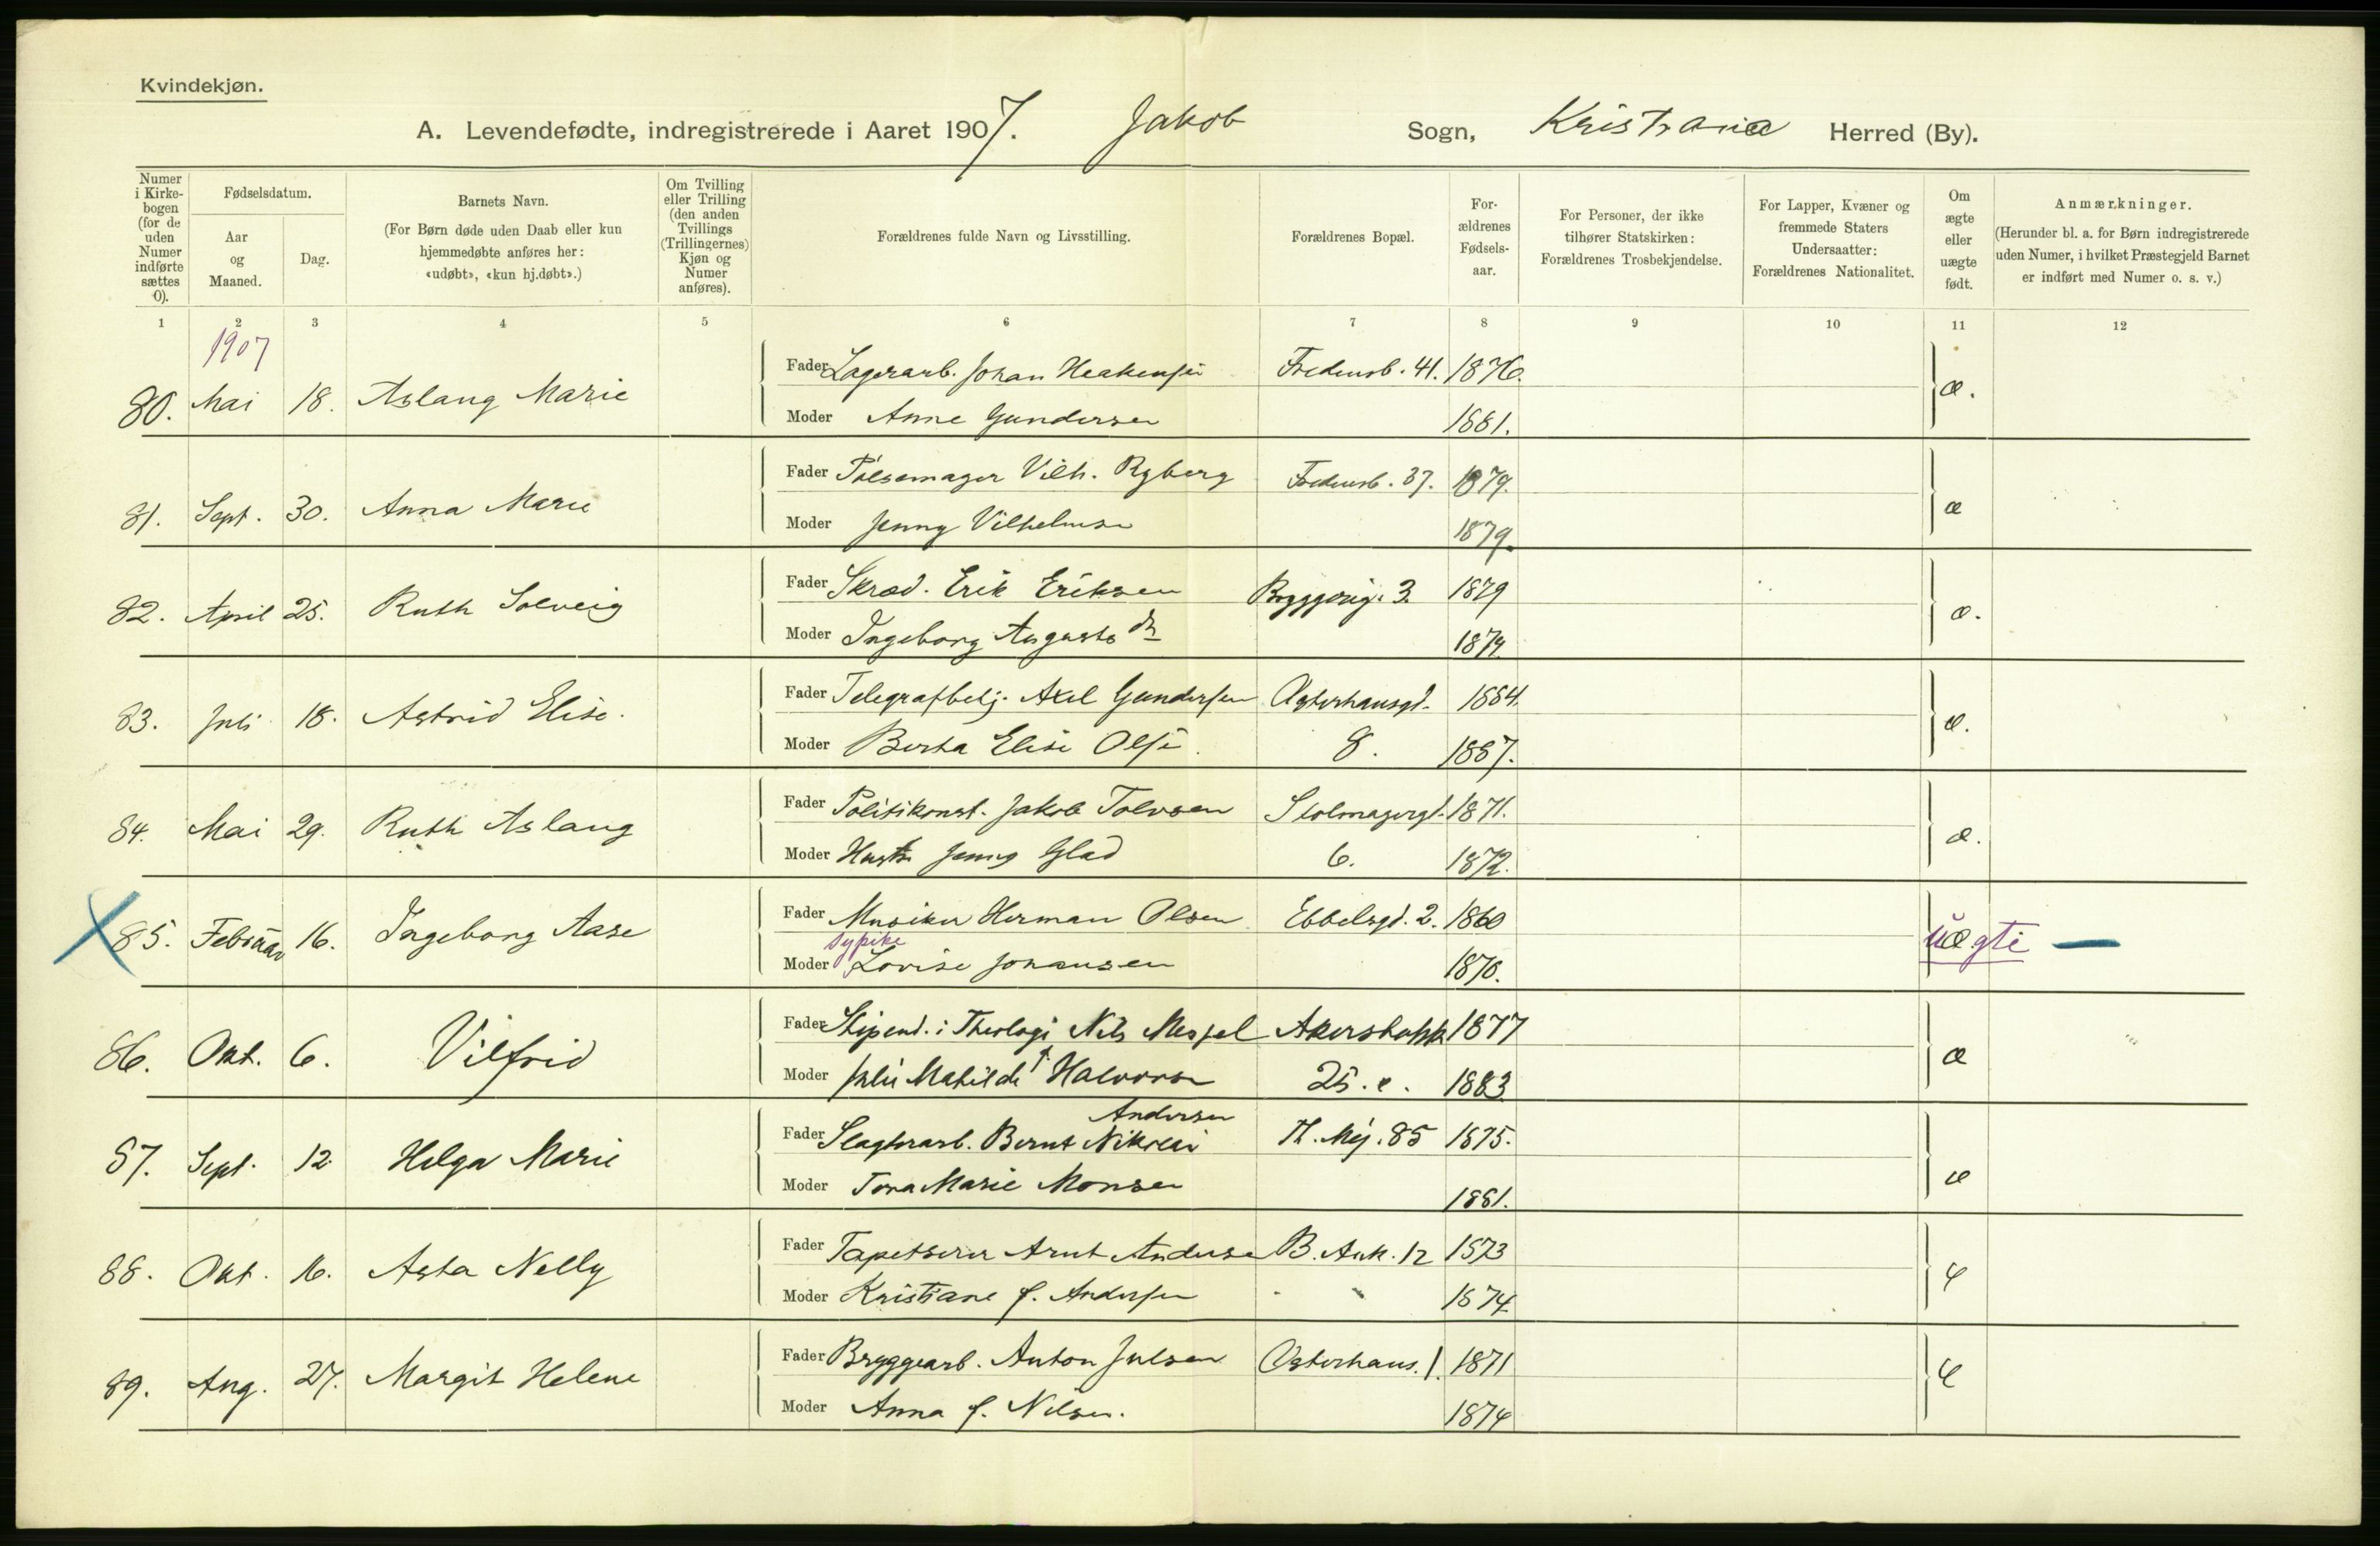 Kvindekjøn.
A. Levendefødte, indregistrerede i Aaret 1907. Jakob Sogn, Kristiania Herred (By).
Numer i Kirkebogen (for de uden Numer indførte sættes 0).
Fødselsdatum.
Aar og Maaned.
Dag.
Barnets Navn.
(For Børn døde uden Daab eller kun hjemmedøbte anføres her: «udøbt», «kun hj.døbt».)
Om Tvilling eller Trilling (den anden Tvillings (Trillingernes) Kjøn og Numer anføres).
Forældrenes fulde Navn og Livsstilling.
Forældrenes Bopæl.
Forældrenes Fødselsaar.
For Personer, der ikke tilhører Statskirken: Forældrenes Trosbekjendelse.
For Lapper, Kvæner og fremmede Staters Undersaatter: Forældrenes Nationalitet.
Om ægte eller uægte født.
Anmærkninger.
(Herunder bl. a. for Børn indregistrerede uden Numer, i hvilket Præstegjeld Barnet er indført med Numer o. s. v.)
1 2 3 4 5 6 7 8 9 10 11 12
1907
80. Mai 18. Aslaug Marie Fader Lagerarb. Johan Heakensen Fredensb. 41. 1876. æ.
Moder Anne Gundersen 1881.
81. Sept. 30. Anna Marie Fader Pølsemager Vilh. Ryberg Fredensb. 37. 1879. æ
Moder Jenny Vilhelmsen 1879.
82. April 25. Ruth Solveig Fader Skræd. Erik Eriksen 3. 1879 æ.
Moder Ingeborg Augusta 1879.
83. Juli 18. Astrid Elise. Fader Telegrafbetj. Axel Gundersen Osterhausgd. 1884. æ.
Moder Berta Elise Olsen 8. 1887.
84. Mai 29. Ruth Aslaug Fader Politikonst. Jakob Tolvsen Stolmagergd. 1871. æ.
Moder Hustru Jenny Glad 6. 1872.
85. Februar 16. Ingeborg Aase Fader Musiker Herman Olsen Ebbelsgd. 2. 1860 uægte —
sypike
Moder Lovise Johansen 1870.
86. Okt. 6. Vilfrid Fader Stipend. i Theologi Nils Messel 1877 æ
Moder Julie Matilde Halvorsen 25. c. 1883
87. Sept. 12 Helga Marie Andersen
Fader Slagterarb. Bernt Nikolai Th. Mej. 85 1875. æ
Moder Tora Marie Monsen 1881.
88. Okt. 16. Asta Nelly Fader Tapetserer Arnt Andersen B. Ank. 12 1873 æ
Moder Kristiane f. Andersen 1874
89. Aug. 27. Margit Helene Fader Bryggearb. Anton Julsen Osterhaus. 1. 1871 æ
Moder Anna f. Nilsen. 1874